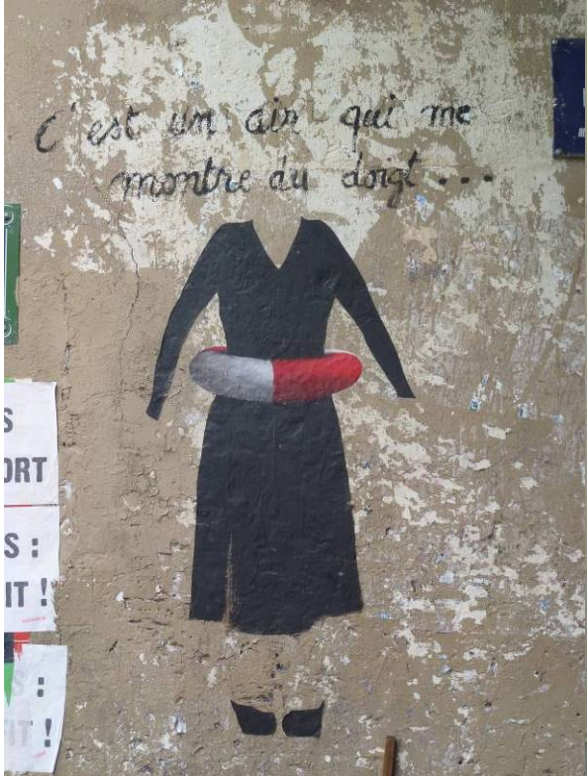 C'est un air qui me
montre du doigt...
S
ORT
S :
IT !
S :
IT !